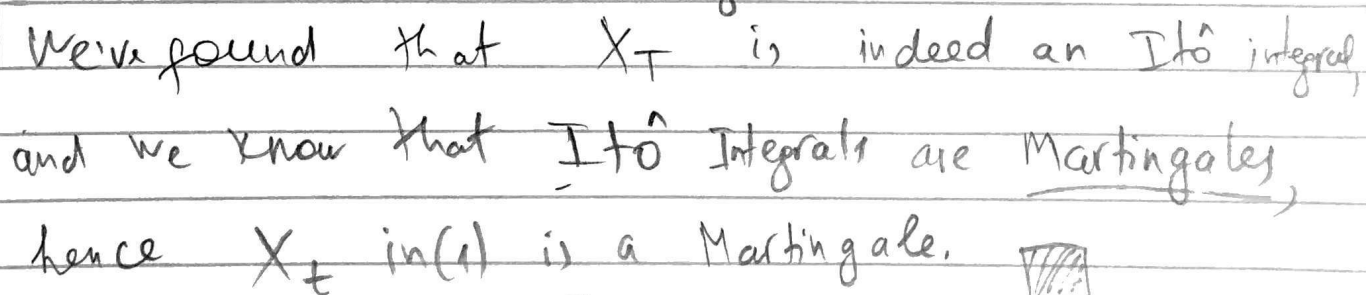 We've found that X_T is indeed an Itô integral,
and we know that Itô Integrals are Martingales,
hence X_t in (1) is a Martingale.